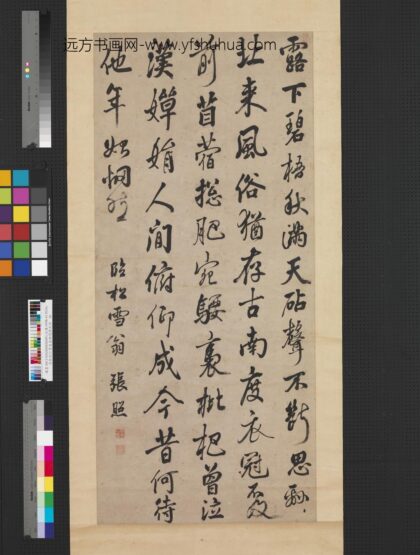 远方书画网-www.yfshuhua.com
露下碧梧秋滿天砧聲不斷思緜〻
北来風俗猶存古南度衣冠不及
前苜蓿總肥宛騕褭枇杷曾泣
漢嬋娟人間俯仰成今昔何待
他年始惘然
臨松雪翁 張照